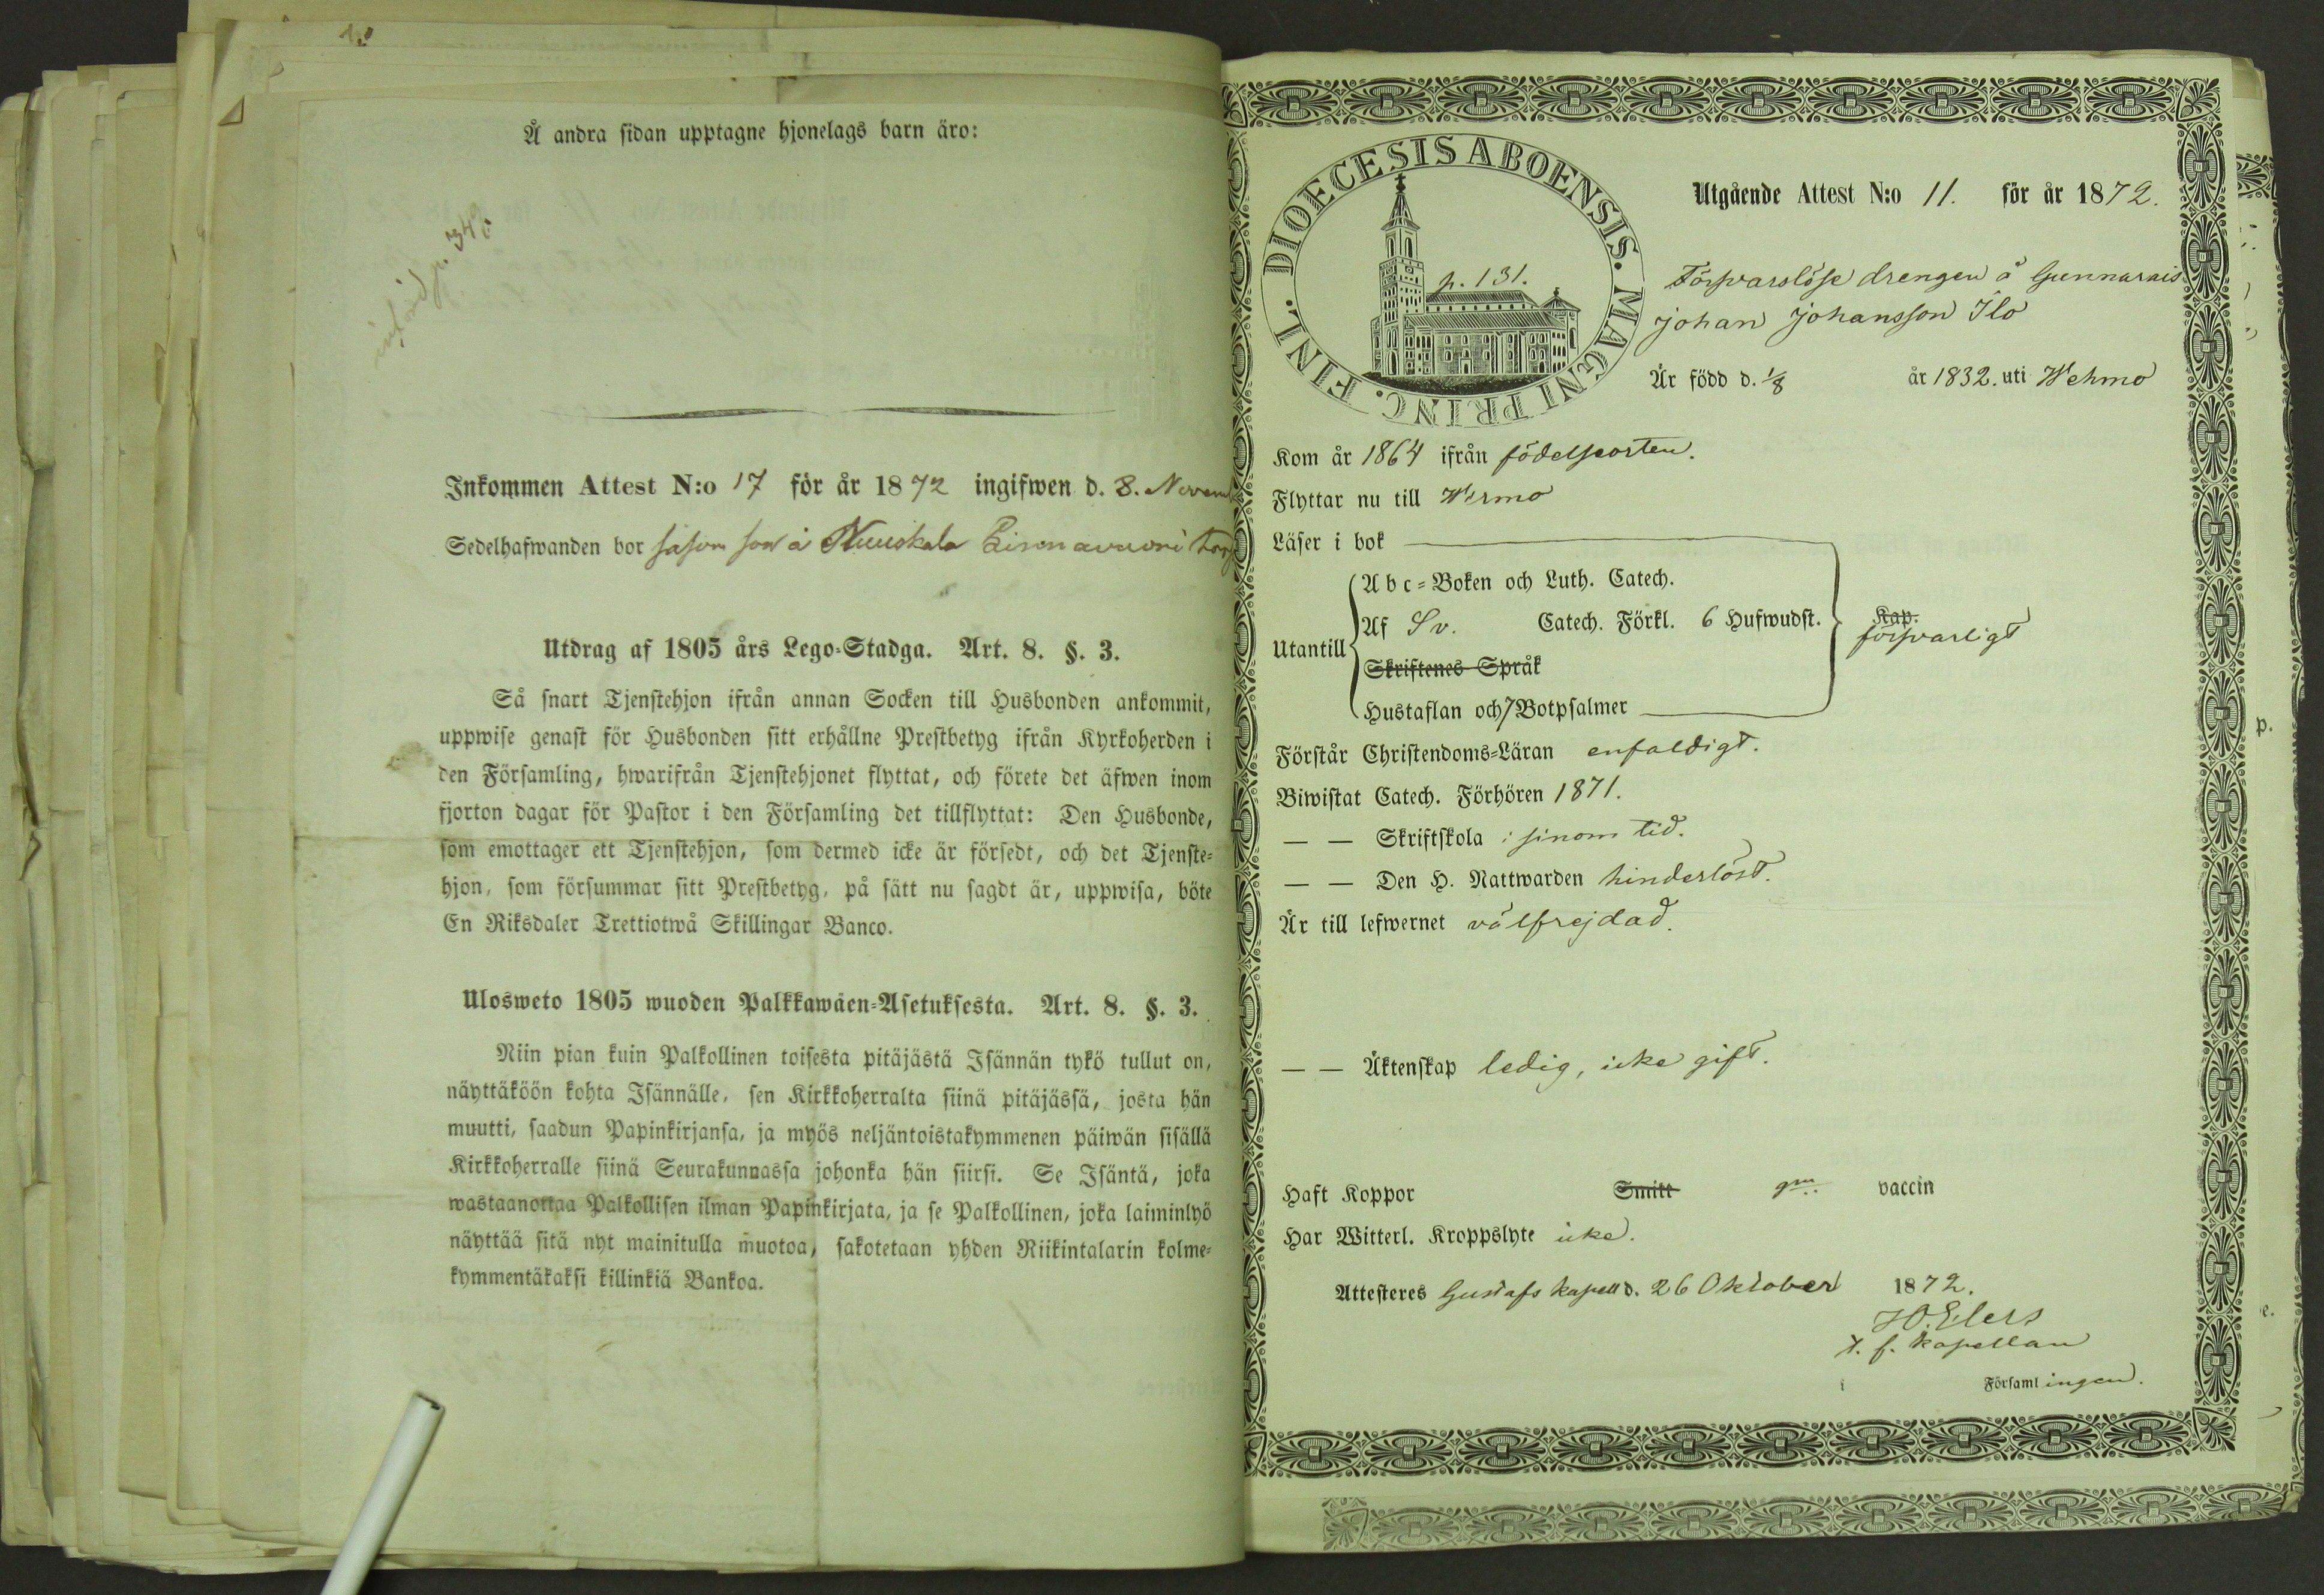 Å andra sidan upptagne hjonelags barn äro:
införd p. 348
Inkommen Attest N:o 17 för år 1872 ingifwen d. 8. Novemb
Sedelhafwanden bor såsom son å Nuuskala torp
Utdrag af 1805 års Lego-Stadga. Art. 8. §. 3.
Så snart Tjenstehjon ifrån annan Socken till Husbonden ankommit,
uppwise genast för Husbonden sitt erhållne Prestbetyg ifrån Kyrkoherden i
den Församling, hwarifrån Tjenstehjonet flyttat, och förete det äfwen inom
fjorton dagar för Pastor i den Församling det tillflyttat: Den Husbonde,
som emottager ett Tjenstehjon, som dermed icke är försedt, och det Tjenste-
hjon, som försummar sitt Prestbetyg, på sätt nu sagdt är, uppwisa, böte
En Riksdaler Trettiotwå Skillingar Banco.
Ulosweto 1805 wuoden Palkkawäen-Asetuksesta. Art. 8. §. 3.
Niin pian kuin Palkollinen toisesta pitäjästä Isännän tykö tullut on,
näyttäköön kohta Isännälle, sen Kirkkoherralta siinä pitäjässä, josta hän
muutti, saadun Papinkirjansa, ja myös neljäntoistakymmenen päiwän sisällä
Kirkkoherralle siinä Seurakunnassa johonka hän siirsi. Se Isäntä, joka
wastaanottaa Palkollisen ilman Papinkirjata, ja se Palkollinen, joka laiminlyö
näyttää sitä nyt mainitulla muotoa, sakotetaan yhden Riikintalarin kolme-
kymmentäkaksi killinkiä Bankoa.
DIOECESIS ABOENSIS. MAGNI PRINC. FINL.
p. 131.
Utgående Attest N:o 11. för år 1872.
Försvarslöse drengen å Gunnarais
Johan Johansson Ilo
Är född d. 1/8 år 1832. uti Wehmo
Kom år 1864 ifrån födelseorten.
Flyttar nu till Wirmo
Läser i bok
Utantill
Abc-Boken och Luth. Catech.
Af Sv. Catech. Förkl. 6 Hufwudst.
Skriftenes Språk
Hustaflan och 7 Botpsalmer
Kap.
försvarligt
Förstår Christendoms-Läran enfaldigt.
Biwistat Catech. Förhören 1871.
— — Skriftskola i sinom tid.
— — Den H. Nattwarden hinderlöst.
Är till lefwernet välfrejdad.
— — Äktenskap ledig, icke gift.
Haft Koppor Smitt gm. vaccin
Har Witterl. Kroppslyte icke.
Attesteres Gustafs kapell d. 26 Oktober 1872.
Elers
t. f. kapellan
i Församlingen.